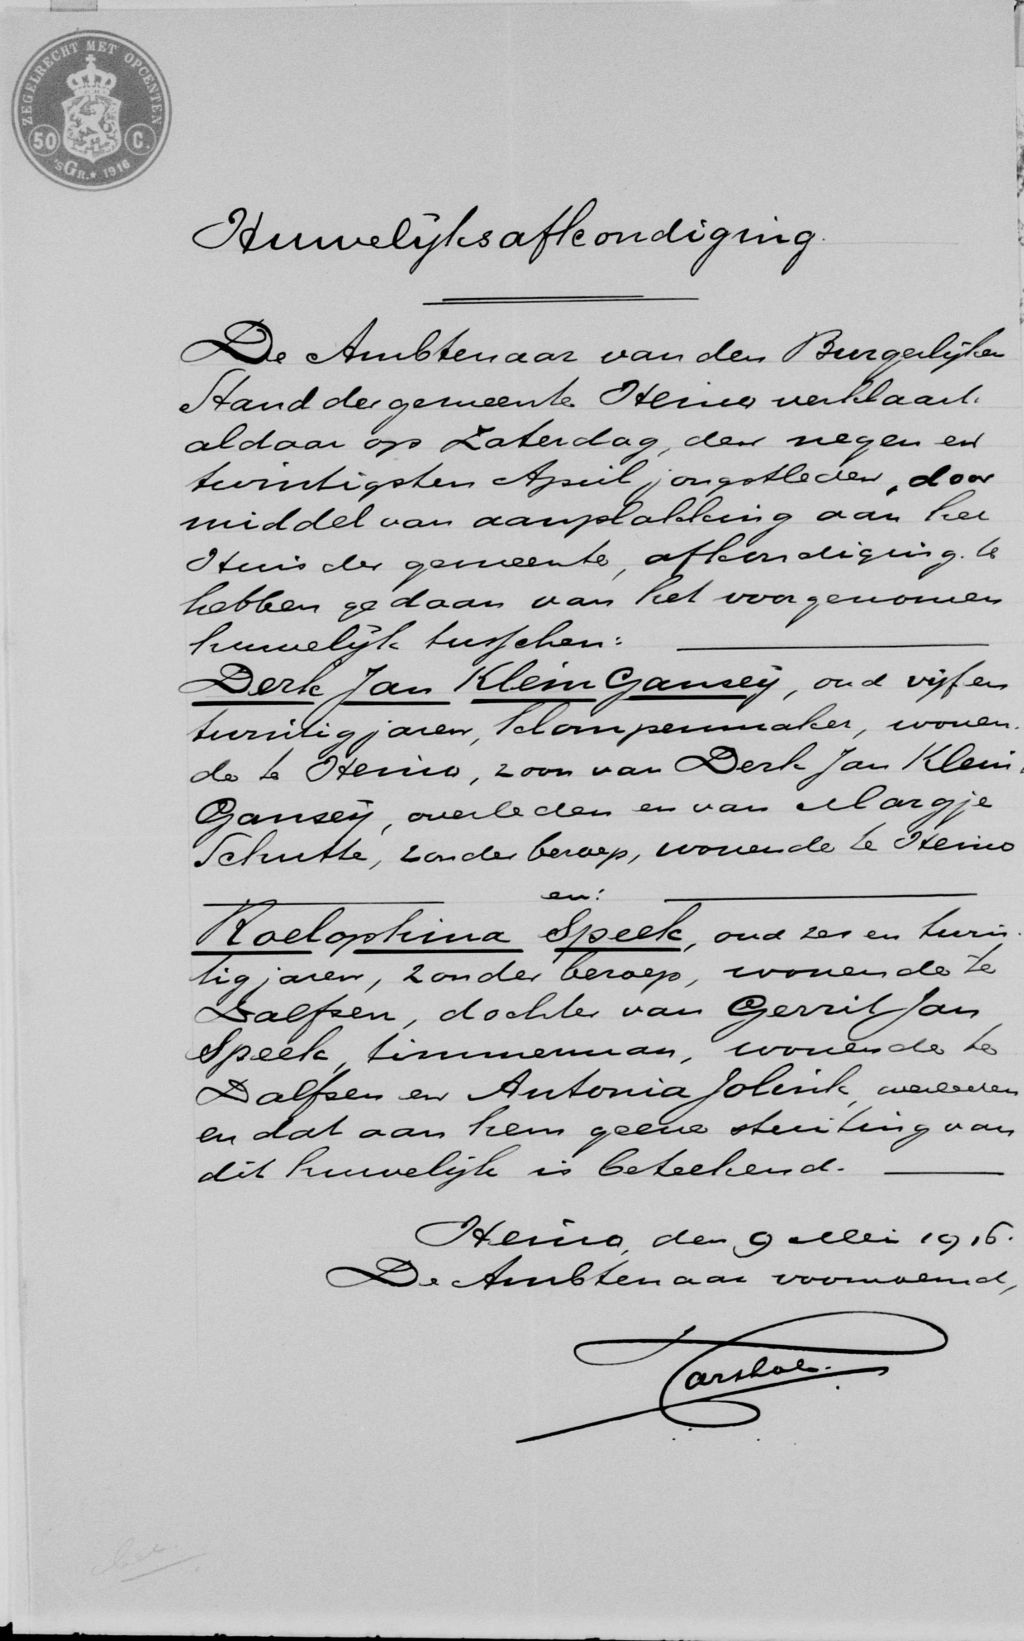 ZEGELRECHT MET OPCENTEN
50 C.
'sGR. * 1916
Huwelijksafkondiging.
De Ambtenaar van den Burgerlijken
Stand der gemeente Heino verklaart
aldaar op Zaterdag, den negen en
twintigsten April jongstleden, door
middel van aanplakking aan het
Huis der gemeente, afkondiging te
hebben gedaan van het voorgenomen
huwelijk tusschen:
Derk Jan Klein Gansey, oud vijf en
twintig jaren, klompenmaker, wonen-
de te Heino, zoon van Derk Jan Klein
Gansey, overleden en van Margje
Schutte, zonder beroep, wonende te Heino
en:
Roelophina Speek, oud zes en twin-
tig jaren, zonder beroep, wonende te
Dalfsen, dochter van Gerrit Jan
Speek, timmerman, wonende te
Dalfsen en Antonia Jolink, overleden
en dat aan hem geene stuiting van
dit huwelijk is beteekend.
Heino, den 9 Mei 1916.
De Ambtenaar voornoemd,